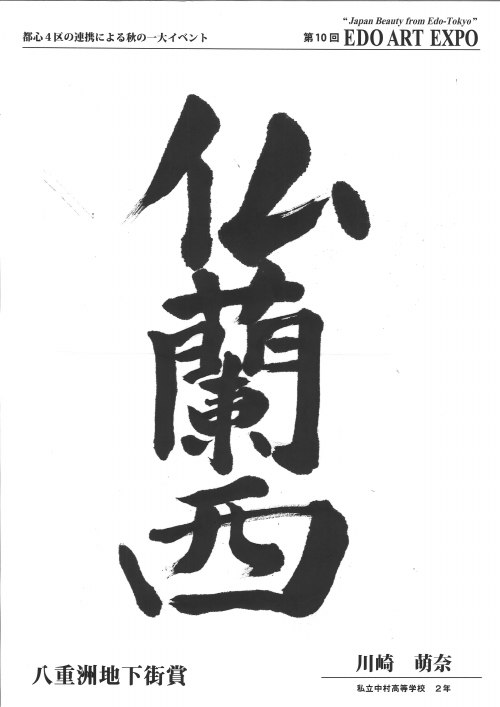 "Japan Beauty from Edo-Tokyo"
都心4区の連携による秋の一大イベント
第10回 EDO ART EXPO
仏蘭西
八重洲地下街賞
川崎 萌奈
私立中村高等学校 2年